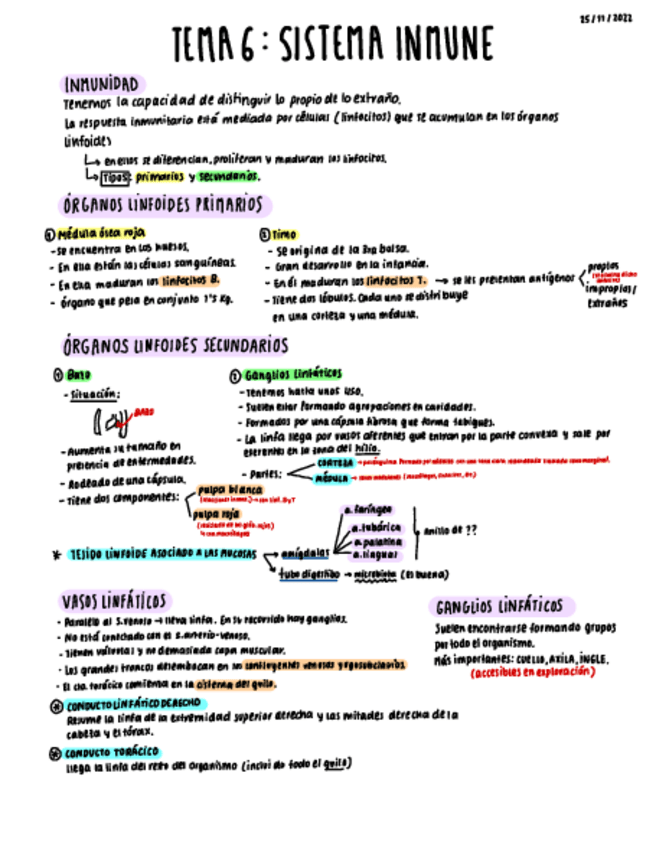 25/11/2022
TEMA 6: SISTEMA INMUNE
INMUNIDAD
Tenemos la capacidad de distinguir lo propio de lo extraño.
La respuesta inmunitaria está mediada por células (linfocitos) que se acumulan en los órganos
linfoides
↳ en ellos se diferencian, proliferan y maduran los linfocitos.
↳ Tipos: primarios y secundarios.
ÓRGANOS LINFOIDES PRIMARIOS
① Médula ósea roja
- Se encuentra en los huesos.
- En ella están las células sanguíneas.
- En ella maduran los linfocitos B.
- órgano que pesa en conjunto 1'5 Kg.
② Timo
- Se origina de la 3ra bolsa.
- Gran desarrollo en la infancia.
- En él maduran los linfocitos T. → se les presentan antígenos
propios
impropios/
Extraños
- Tiene dos lóbulos. Cada uno se distribuye
en una corteza y una médula.
ÓRGANOS LINFOIDES SECUNDARIOS
① Bazo
- Situación:
BAZO
- Aumenta su tamaño en
presencia de enfermedades.
- Rodeado de una cápsula.
- Tiene dos componentes:
pulpa blanca
pulpa roja
② Ganglios linfáticos
- Tenemos hasta unos 450.
- Suelen estar formando agrupaciones en cavidades.
- Formados por una cápsula fibrosa que forma tabiques.
- La linfa llega por vasos aferentes que entran por la parte convexa y sale por
eferentes en la zona del hilio.
- Partes:
CORTEZA
MÉDULA
* TEJIDO LINFOIDE ASOCIADO A LAS MUCOSAS
amígdalas
a. faríngea
a. tubárica
a. palatina
a. lingual
anillo de ??
tubo digestivo → microbiota (es buena)
VASOS LINFÁTICOS
- Paralelo al S. venoso → lleva linfa. En su recorrido hay ganglios.
- No está conectado con el s. arterio-venoso.
- Tienen válvulas y no demasiada capa muscular.
- Los grandes troncos desembocan en los confluyentes venosos yugosubclavios.
- El cto. torácico comienza en la cisterna del quilo.
⊛ CONDUCTO LINFÁTICO DERECHO
Resume la linfa de la extremidad superior derecha y las mitades derecha de la
cabeza y el tórax.
⊛ CONDUCTO TORÁCICO
Llega la linfa del resto del organismo (incluido todo el quilo)
GANGLIOS LINFÁTICOS
Suelen encontrarse formando grupos
por todo el organismo.
Más importantes: CUELLO, AXILA, INGLE.
(accesibles en exploración)